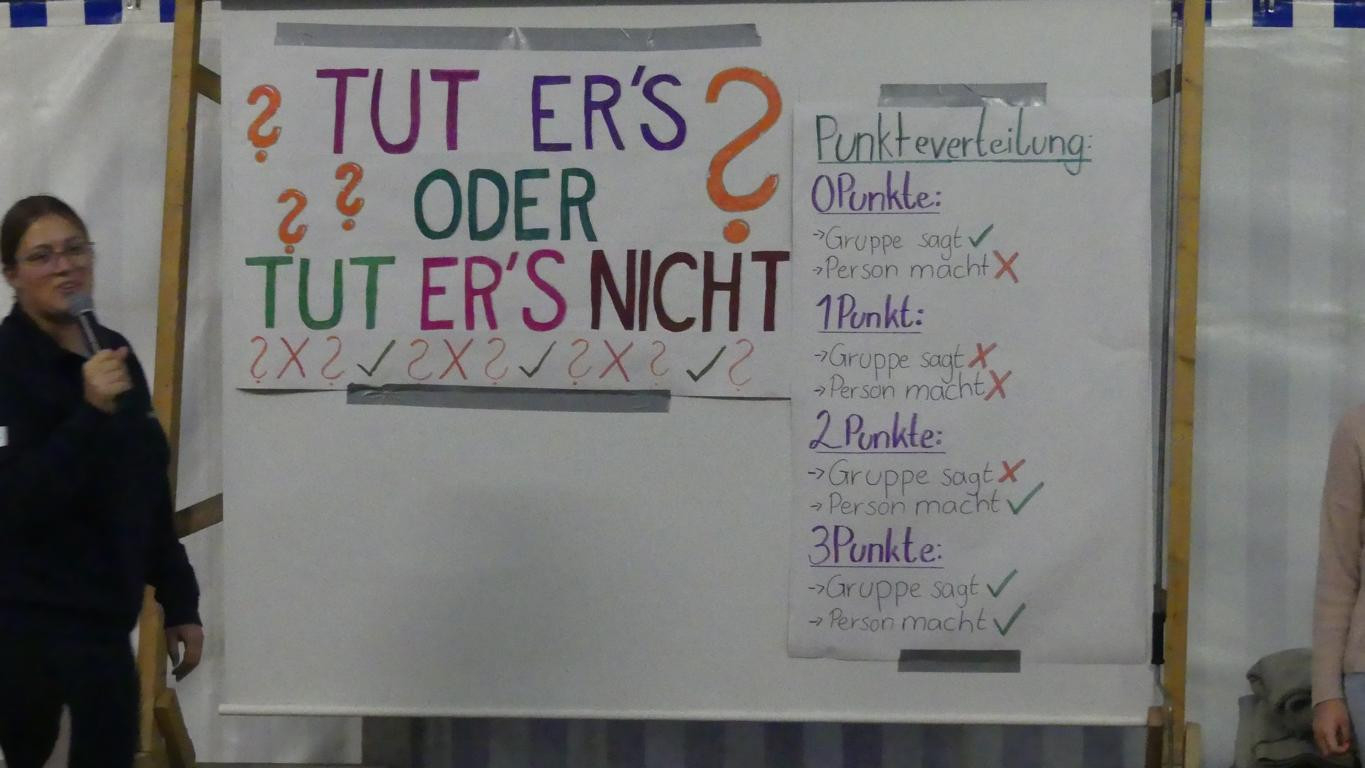 ? TUT ER'S ?
? ? ODER
TUT ER'S NICHT
? X ? ✓ ? X ? ✓ ? X ? ✓ ?
Punkteverteilung:
0 Punkte:
→ Gruppe sagt ✓
→ Person macht X
1 Punkt:
→ Gruppe sagt X
→ Person macht X
2 Punkte:
→ Gruppe sagt X
→ Person macht ✓
3 Punkte:
→ Gruppe sagt ✓
→ Person macht ✓